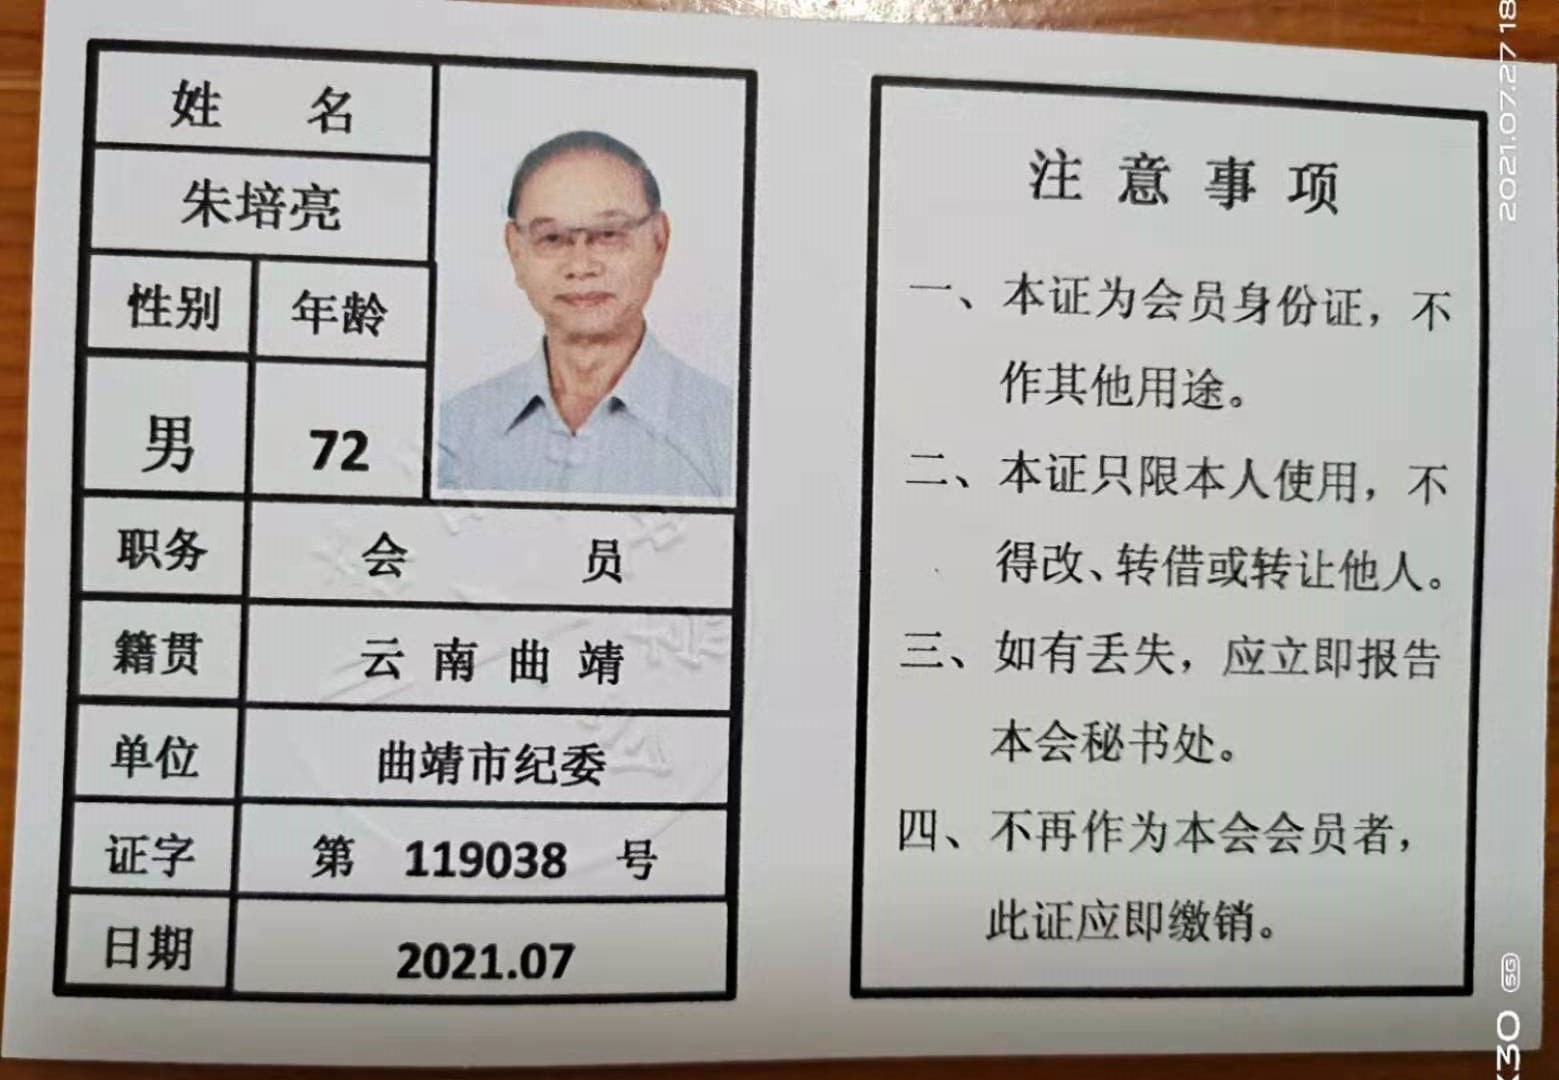 姓 名
朱培亮
性别 年龄
男 72
职务 会 员
籍贯 云南曲靖
单位 曲靖市纪委
证字 第 119038 号
日期 2021.07
注意事项
一、本证为会员身份证，不
作其他用途。
二、本证只限本人使用，不
得改、转借或转让他人。
三、如有丢失，应立即报告
本会秘书处。
四、不再作为本会会员者，
此证应即缴销。
2021.07.27 18
X30 5G